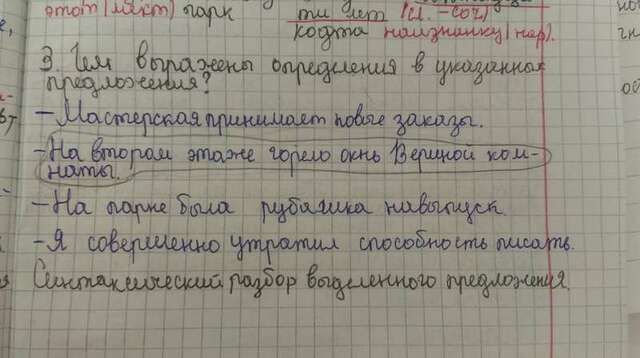 этот (мест) парк
ти лет (сл. -соч)
кофта наизнанку (нар).
3. Чем выражены определения в указанных
предложениях?
- Мастерская принимает новые заказы.
- На втором этаже горело окнь Вериной ком-
наты.
- На парне была рубашка навыпуск.
- Я совершенно утратил способность писать.
Синтаксический разбор выделенного предложения.